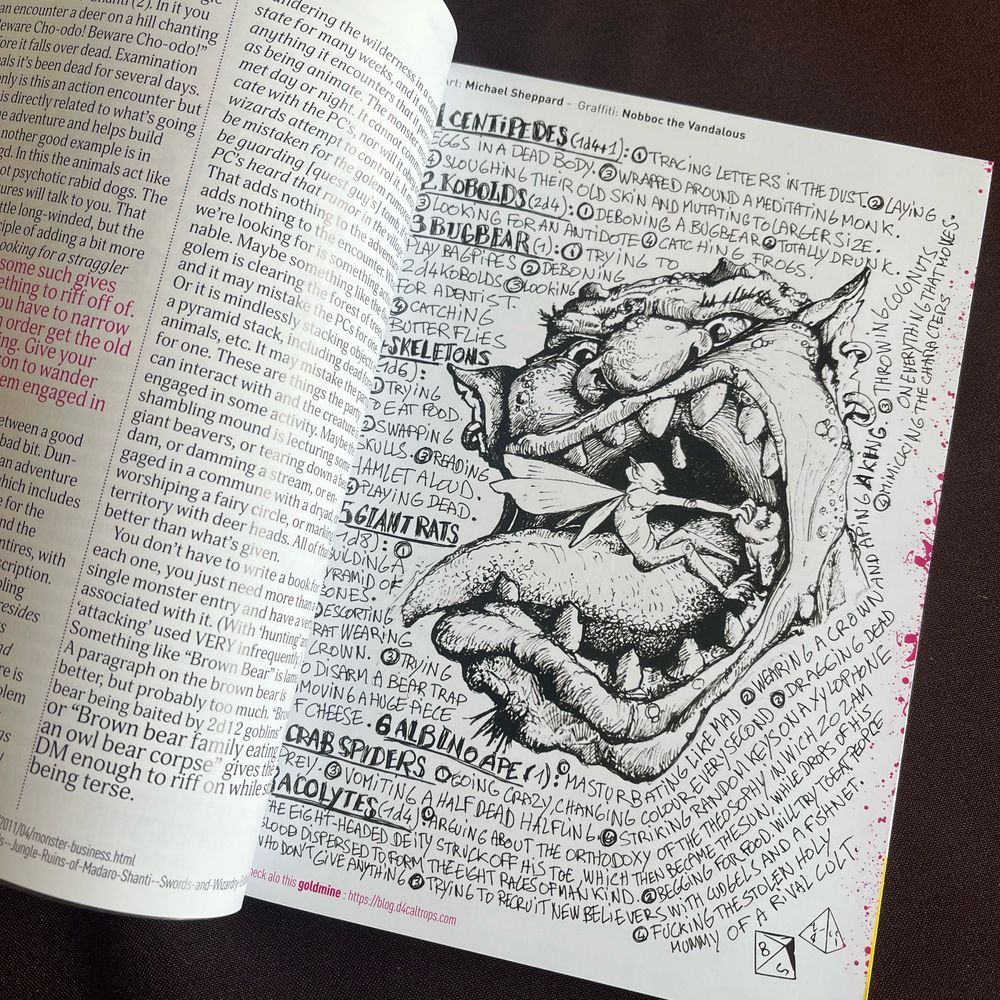 hanti (2). In it you
an encounter a deer on a hill chanting
Beware Cho-odo! Beware Cho-odo!”
fore it falls over dead. Examination
als it's been dead for several days.
only is this an action encounter but
is directly related to what's going
he adventure and helps build
nother good example is in
gd. In this the animals act like
ot psychotic rabid dogs. The
tures will talk to you. That
ttle long-winded, but the
ciple of adding a bit more
ooking for a straggler
some such gives
ething to riff off of.
ou have to narrow
n order get the old
ing. Give your
ion to wander
em engaged in
etween a good
bad bit. Dun-
an adventure
which includes
e for the
nd the
ntires, with
scription.
bling
resides
nd
ere is
blem
as
ndering the wilderness in a
state for many weeks, and it
anything it encounters that
as being animate. The monster
met day or night. It cannot
cate with the PC's, nor will it
wizards attempt to control it. It
be mistaken for the golem
be guarding [quest guy's] tomb, if
PC's heard that rumor in the
That adds nothing to the
adds nothing to the encounter. What
we're looking for is something
nable. Maybe something like the
golem is clearing the forest of trees
and it may mistake the PC's for one.
Or it is mindlessly stacking objects
a pyramid stack, including dead
animals, etc. It may mistake the
for one. These are things the party
can interact with and the creature
engaged in some activity. Maybe the
shambling mound is lecturing some
giant beavers, or tearing down a
dam, or damming a stream, or en-
gaged in a commune with a dryad,
worshiping a fairy circle, or marking
territory with deer heads. All of
better than what's given.
You don't have to write a book for
each one, you just need more than
single monster entry and have a
associated with it. (With ‘hunting’
‘attacking’ used VERY infrequently
Something like “Brown Bear” is lame
A paragraph on the brown bear is
better, but probably too much. “Bro
bear being baited by 2d12 goblins”
or “Brown bear family eating
an owl bear corpse” gives the
DM enough to riff on while
being terse.
2011/04/monster-business.html
s--Jungle-Ruins-of-Madaro-Shanti--Swords-and-Wizardry-
Art: Michael Sheppard - Graffiti: Nobboc the Vandalous
1 CENTIPEDES (1d4+1): ① TRACING LETTERS IN THE DUST. ② LAYING
EGGS IN A DEAD BODY. ③ WRAPPED AROUND A MEDITATING MONK.
④ SLOUGHING THEIR OLD SKIN AND MUTATING TO LARGER SIZE.
2 KOBOLDS (2d4): ① DEBONING A BUGBEAR ② TOTALLY DRUNK.
③ LOOKING FOR AN ANTIDOTE ④ CATCHING FROGS.
3 BUGBEAR (1): ① TRYING TO
PLAY BAGPIPES ② DEBONING
2d4 KOBOLDS ③ LOOKING
FOR A DENTIST.
④ CATCHING
BUTTERFLIES
4 SKELETONS
(1d6):
① TRYING
TO EAT FOOD.
② SWAPPING
SKULLS. ③ READING
HAMLET ALOUD.
④ PLAYING DEAD.
5 GIANT RATS
(1d8): ①
BUILDING A
PYRAMID OF
BONES.
② ESCORTING
RAT WEARING
CROWN. ③ TRYING
TO DISARM A BEAR TRAP
④ MOVING A HUGE PIECE
OF CHEESE. 6 ALBINO APE (1): ① MASTURBATING LIKE MAD ② WEARING A CROWN AND APING A KING. ③ THROWING COCONUTS
ON EVERYTHING THAT MOVES.
④ MIMICKING THE CHARACTERS
7 CRAB SPIDERS ① GOING CRAZY, CHANGING COLOUR EVERY SECOND ② DRAGGING DEAD
PREY. ③ VOMITING A HALF DEAD HALFLING. ④ STRIKING RANDOM KEYS ON A XYLOPHONE
8 ACOLYTES (1d4) ① ARGUING ABOUT THE ORTHODOXY OF THE THEOSOPHY IN WHICH ZOZAM
THE EIGHT-HEADED DEITY STRUCK OFF HIS TOE, WHICH THEN BECAME THE SUN, WHILE DROPS OF HIS
BLOOD DISPERSED TO FORM THE EIGHT RACES OF MANKIND. ② BEGGING FOR FOOD. WILL TRY TO BEAT PEOPLE
WHO DON'T GIVE ANYTHING ③ TRYING TO RECRUIT NEW BELIEVERS WITH CUDGELS AND A FISHNET.
④ FUCKING THE STOLEN HOLY
MUMMY OF A RIVAL CULT.
heck alo this goldmine : https://blog.d4caltrops.com